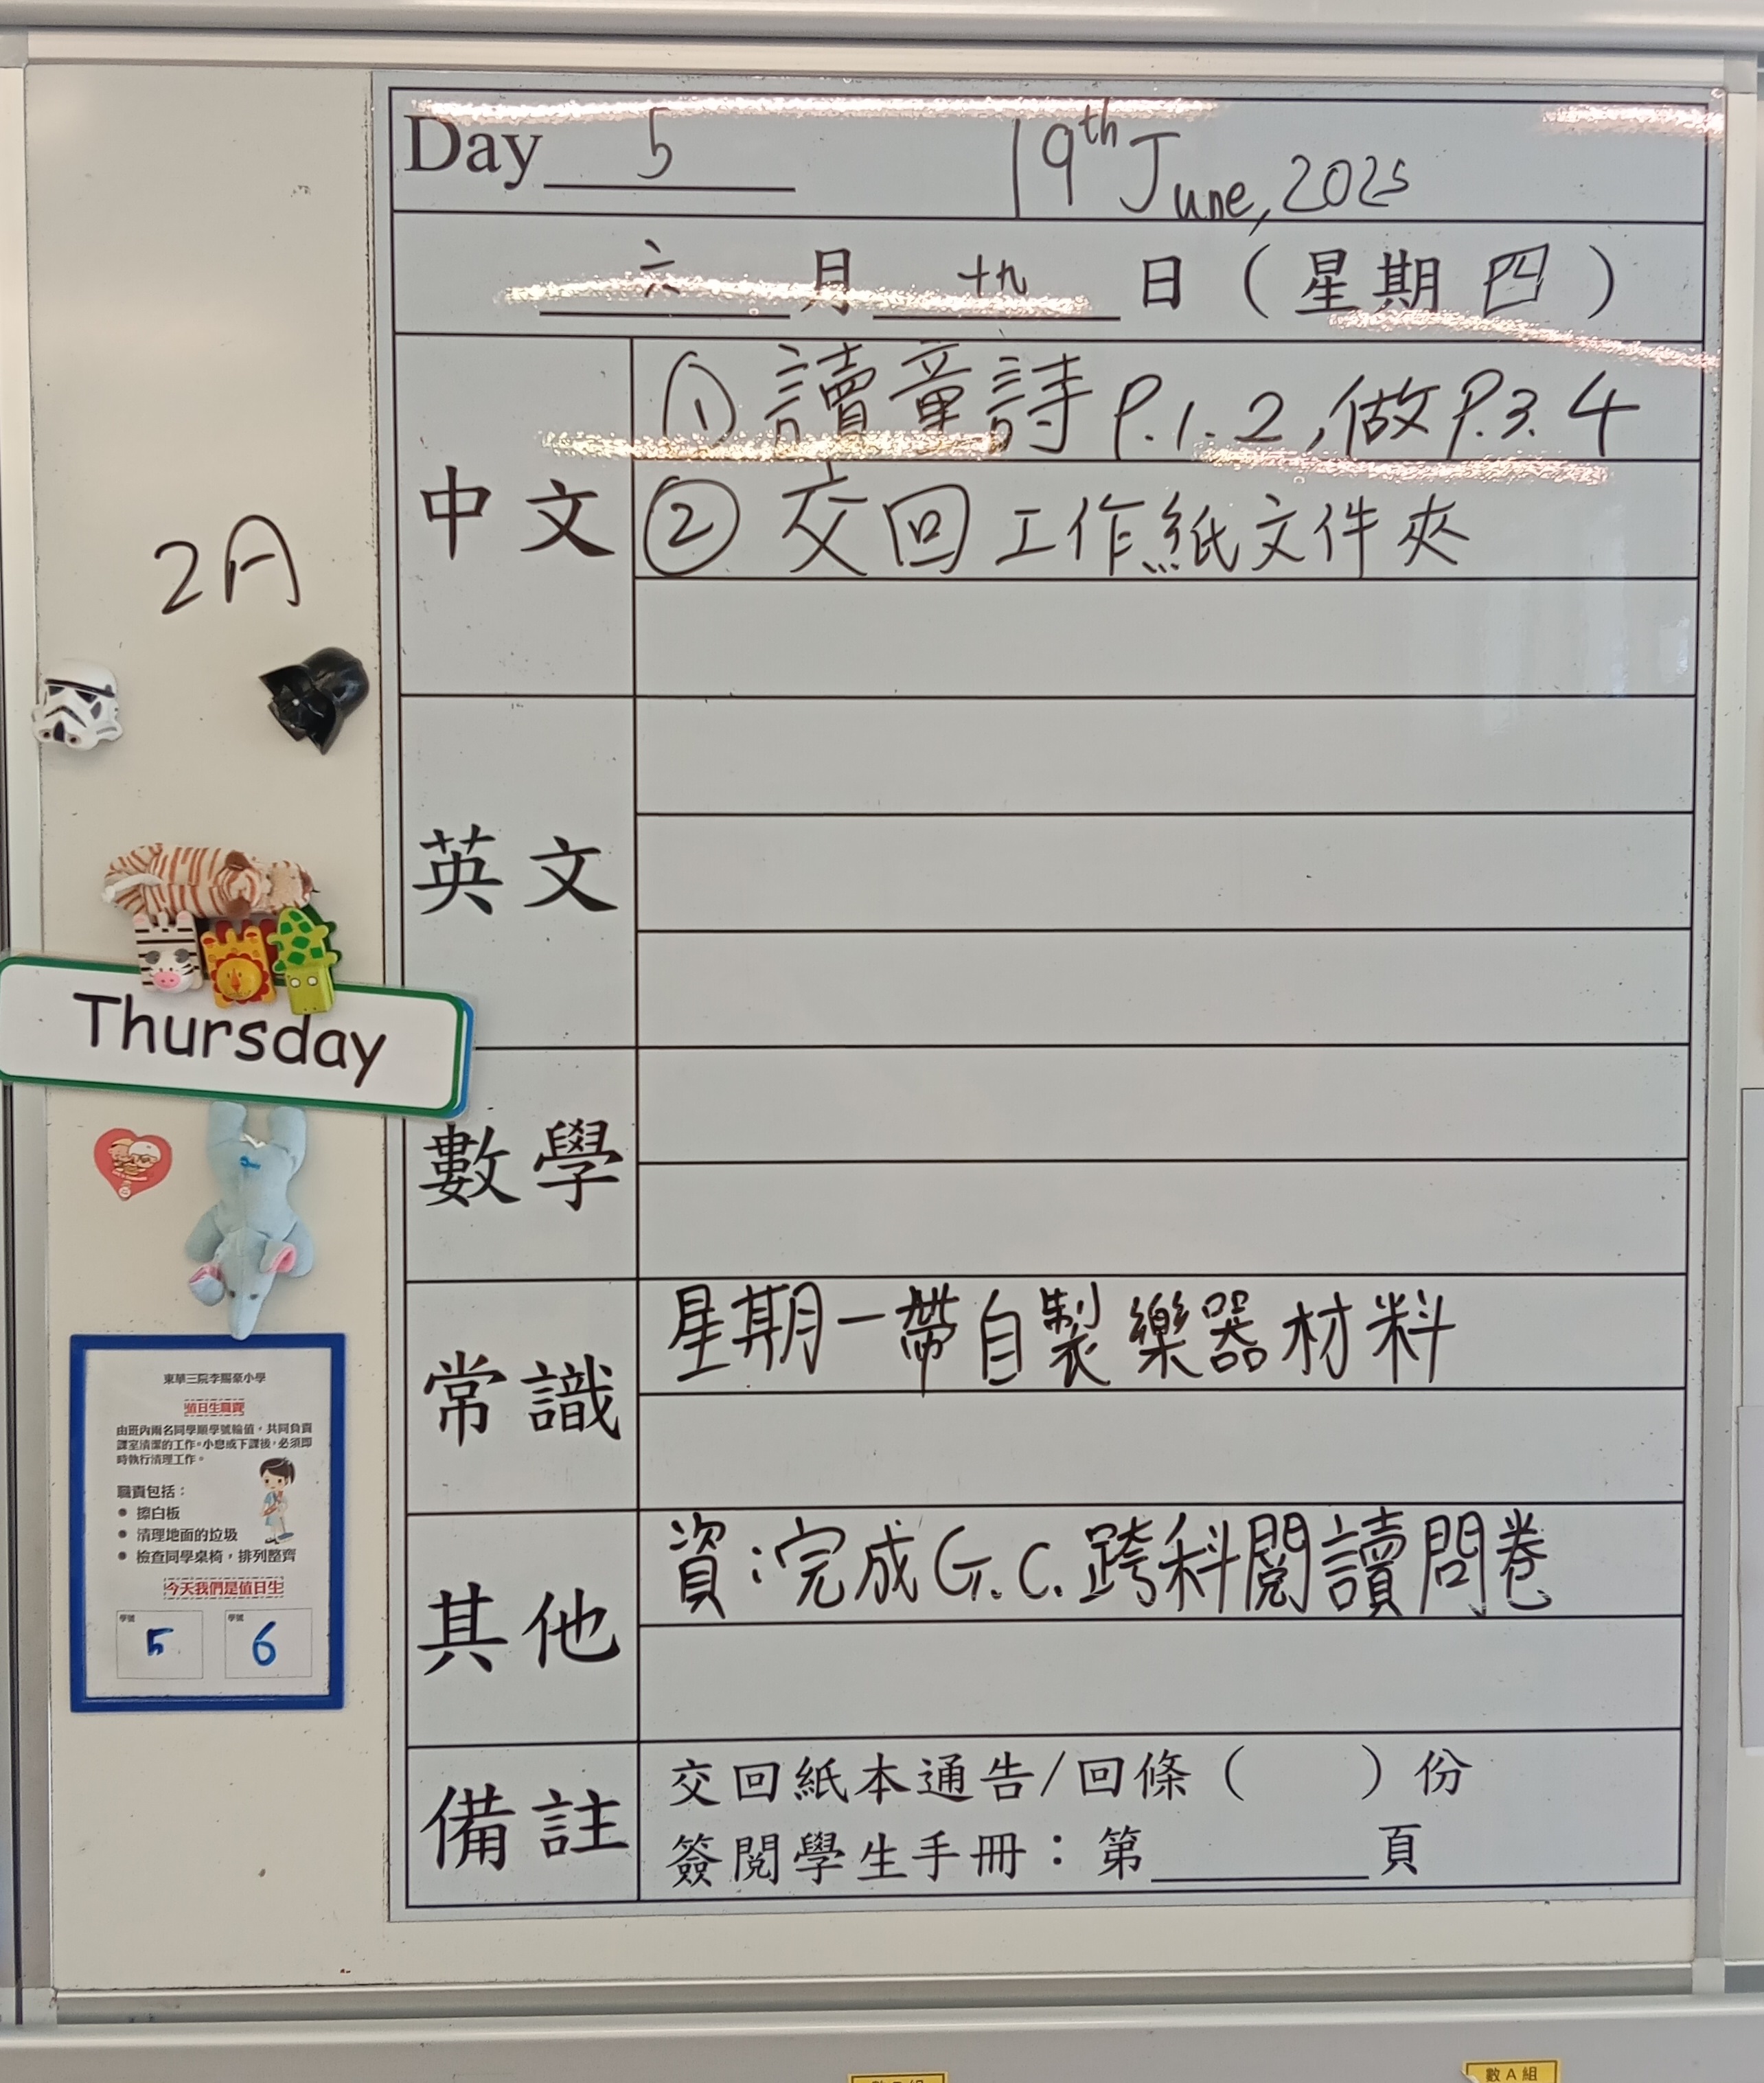 Day 5 19th June, 2025
六 月 十九 日（星期 四）
中文
① 讀童詩 P.1.2,做P.3.4
② 交回工作紙文件夾
2A
英文
Thursday
數學
常識
星期一帶自製樂器材料
其他
資:完成G.C.跨科閱讀問卷
備註
交回紙本通告/回條（　　）份
簽閱學生手冊：第 頁
東華三院李賜豪小學
值日生職責
由班內兩名同學順學號輪值，共同負責
課室清潔的工作。小息或下課後，必須即
時執行清理工作。
職責包括：
● 擦白板
● 清理地面的垃圾
● 檢查同學桌椅，排列整齊
今天我們是值日生
學號 學號
5 6
數A組